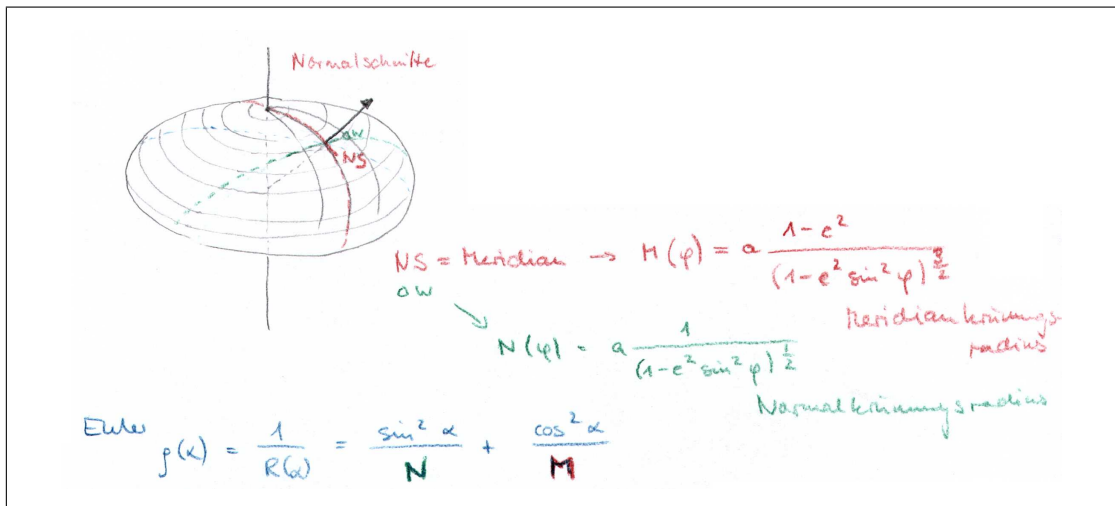 Normalschnitte
OW
NS
NS = Meridian → M(φ) = a \frac{1-e^2}{(1-e^2 sin^2 φ)^{\frac{3}{2}}}
OW
Meridiankrümmungs-
radius
N(φ) = a \frac{1}{(1-e^2 sin^2 φ)^{\frac{1}{2}}}
Normalkrümmungsradius
Euler
ρ(α) = \frac{1}{R(α)} = \frac{sin^2 α}{N} + \frac{cos^2 α}{M}